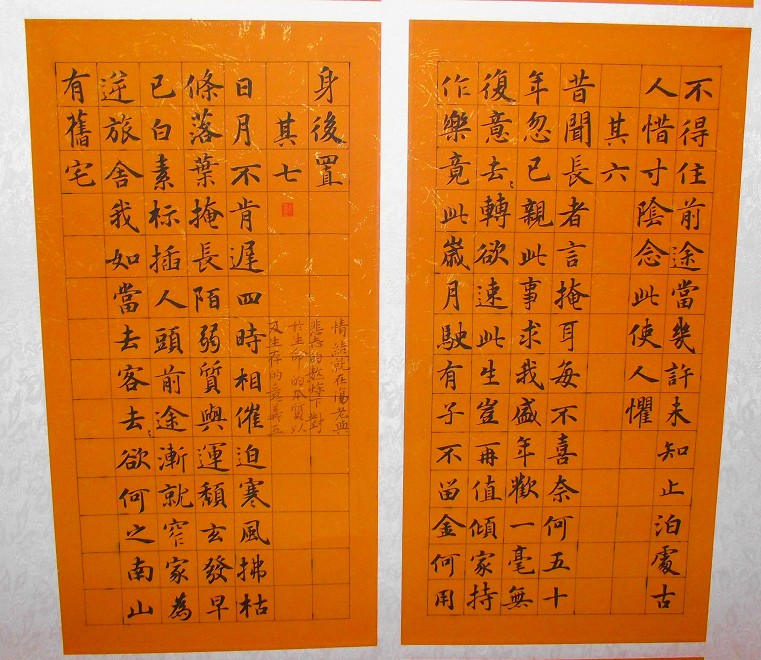 不得住前途當幾許未知止泊處古
人惜寸陰念此使人懼
其六
昔聞長者言掩耳每不喜奈何五十
年忽已親此事求我盛年歡一毫無
復意去々轉欲速此生豈再值傾家持
作樂竟此歲月駛有子不留金何用
身後置
其七
日月不肯遲四時相催迫寒風拂枯
條落葉掩長陌弱質與運頹玄發早
已白素标插人頭前途漸就窄家為
逆旅舍我如當去客去々欲何之南山
有舊宅
情結就在老與
的下對
於生命的本質以
及生存的意義